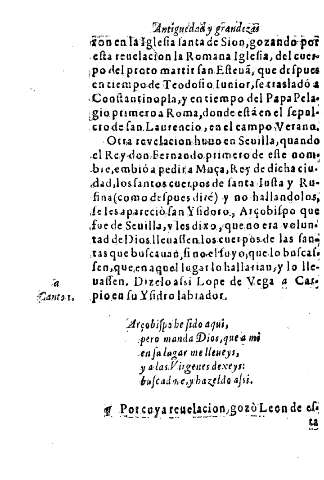 Antiguedad y grandezas
ron en la Iglesia santa de Sion, gozando por
esta reuelacion la Romana Iglesia, del cuer
po del proto martir san Esteuã, que despues
en tiempo de Teodosio Iunior, se trasladò a
Constantinopla, y en tiempo del Papa Pela
gio primero a Roma, donde està en el sepul
cro de san Laurencio, en el campo Verano.
Otra reuelacion huuo en Seuilla, quando
el Rey don Fernando primero de este nom
bre, embiò a pedir a Muça, Rey de dicha ciu
dad, los santos cuerpos de santa Iusta y Ru
fina (como despues dirè) y no hallandolos,
se les apareciò san Ysidoro, Arçobispo que
fue de Seuilla, y les dixo, que no era volun
tad de Dios, lleuassen los cuerpos de las san
tas que buscauan, si no el suyo, que lo buscas
sen, que en aquel lugar lo hallarian, y lo lle
uassen. Dizelo assi Lope de Vega a Car
pio, en su Ysidro labrador.
a
Canto 1.
Arçobispo he sido aqui,
pero manda Dios, que a mi
en su lugar me lleueys,
y a las Virgenes dexeys:
buscadme, y hazeldo assi.
¶ Por cuya reuelacion, gozò Leon de es
ta